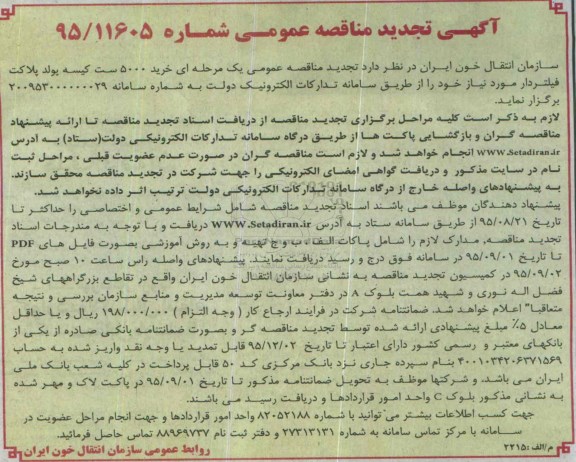 آگهی تجدید مناقصه عمومی شماره ۹۵/۱۱۶۰۵
سازمان انتقال خون ایران در نظر دارد تجدید مناقصه عمومی یک مرحله ای خرید ۵۰۰۰ ست کیسه پولد پلاکت
فیلتردار مورد نیاز خود را از طریق سامانه تدارکات الکترونیک دولت به شماره سامانه ۲۰۰۹۵۳۰۰۰۰۰۰۰۲۹
برگزار نماید.
لازم به ذکر است کلیه مراحل برگزاری تجدید مناقصه از دریافت اسناد تجدید مناقصه تا ارائه پیشنهاد
مناقصه گران و بازگشایی پاکت ها از طریق درگاه سامانه تدارکات الکترونیکی دولت(ستاد) به آدرس
www.Setadiran.ir انجام خواهد شد و لازم است مناقصه گران در صورت عدم عضویت قبلی ، مراحل ثبت
نام در سایت مذکور و دریافت گواهی امضای الکترونیکی را جهت شرکت در تجدید مناقصه محقق سازند.
به پیشنهادهای واصله خارج از درگاه سامانه تدارکات الکترونیکی دولت ترتیب اثر داده نخواهد شد.
پیشنهاد دهندگان موظف می باشند اسناد تجدید مناقصه شامل شرایط عمومی و اختصاصی را حداکثر تا
تاریخ ۹۵/۰۸/۲۱ از طریق سامانه ستاد به آدرس www.Setadiran.ir دریافت و با توجه به مندرجات اسناد
تجدید مناقصه، مدارک لازم را شامل پاکات الف ، ب و ج تهیه و به روش آموزشی بصورت فایل های PDF
تا تاریخ ۹۵/۰۹/۰۱ در سامانه فوق درج و رسید دریافت نمایند. پیشنهادهای واصله راس ساعت ۱۰ صبح مورخ
۹۵/۰۹/۰۲ در کمیسیون تجدید مناقصه به نشانی سازمان انتقال خون ایران واقع در تقاطع بزرگراههای شیخ
فضل اله نوری و شهید همت بلوک A در دفتر معاونت توسعه مدیریت و منابع سازمان بررسی و نتیجه
متعاقبا" اعلام خواهد شد. ضمانتنامه شرکت در فرایند ارجاع کار ( وجه التزام ) ۱۹۸/۰۰۰/۰۰۰ ریال و یا حداقل
معادل ۵٪ مبلغ پیشنهادی ارائه شده توسط تجدید مناقصه گر و بصورت ضمانتنامه بانکی صادره از یکی از
بانکهای معتبر و رسمی کشور دارای اعتبار تا تاریخ ۹۵/۱۲/۰۲ قابل تمدید یا وجه نقد واریز شده به حساب
۴۰۰۱۰۳۴۲۰۶۳۷۱۵۶۹ بنام سپرده جاری نزد بانک مرکزی کد ۵۰ قابل پرداخت در کلیه شعب بانک ملی
ایران می باشد. و شرکتها موظف به تحویل ضمانتنامه مذکور تا تاریخ ۹۵/۰۹/۰۱ در پاکت لاک و مهر شده
به نشانی مذکور بلوک C واحد امور قراردادها و دریافت رسید می باشند.
جهت کسب اطلاعات بیشتر می توانید با شماره ۸۲۰۵۲۱۸۸ واحد امور قراردادها و جهت انجام مراحل عضویت در
سامانه با مرکز تماس سامانه به شماره ۲۷۳۱۳۱۳۱ و دفتر ثبت نام ۸۸۹۶۹۷۳۷ تماس حاصل فرمائید.
م/الف :۲۲۱۵ روابط عمومی سازمان انتقال خون ایران